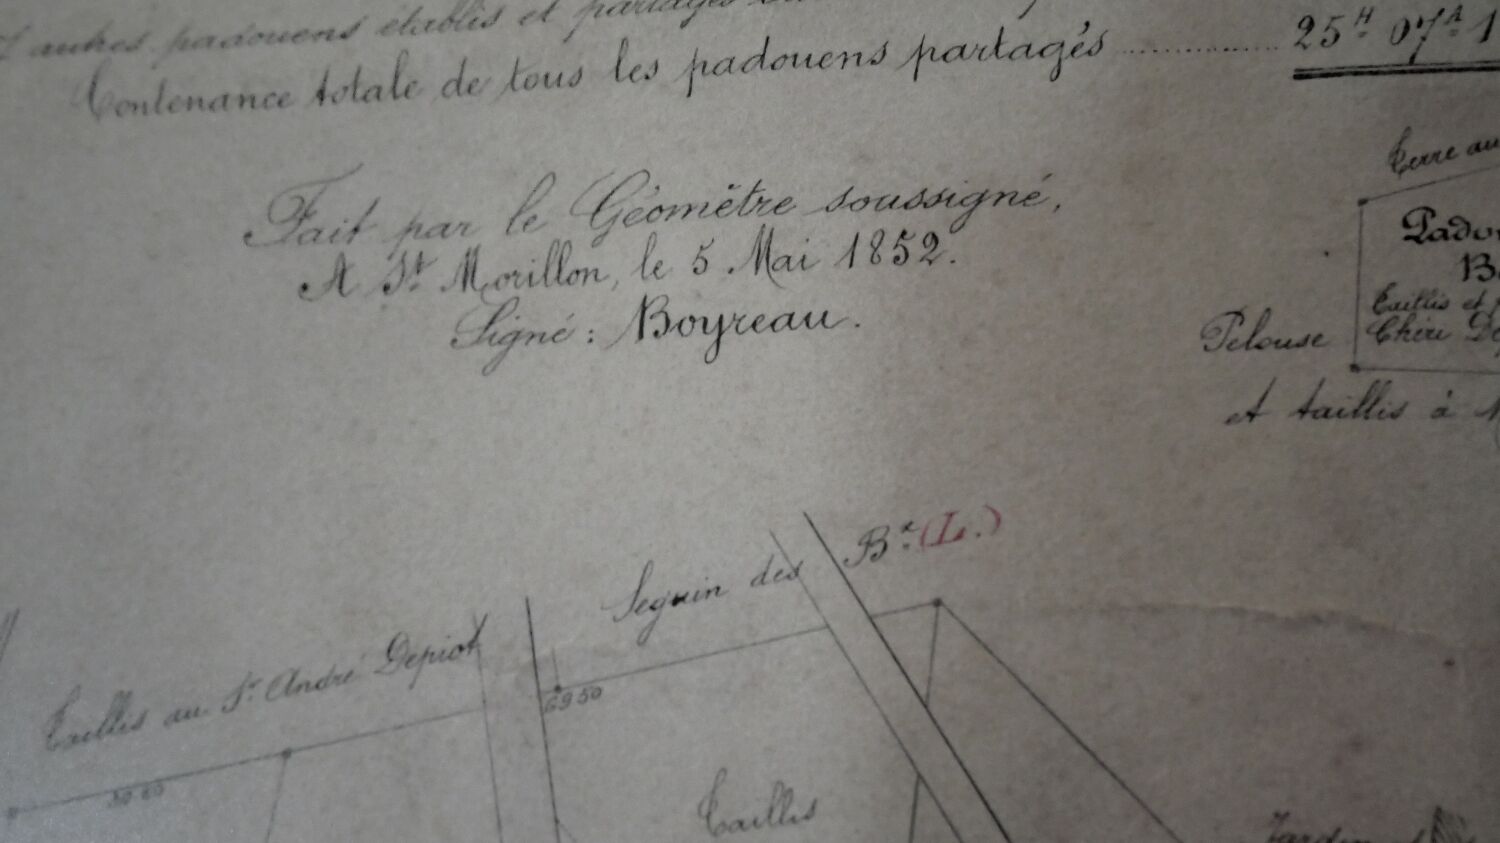 autres padouens établis et partagés
Contenance totale de tous les padouens partagés .................... 25H 07A 1
Fait par le Géomètre soussigné,
A St. Morillon, le 5 Mai 1852.
Signé : Boyreau.
Terre au
Pelouse
Taillis et
Chéri
et taillis à
Seguin des Bx. (L.)
Taillis au Sr. André Depiot
69 50
Taillis
Jardin